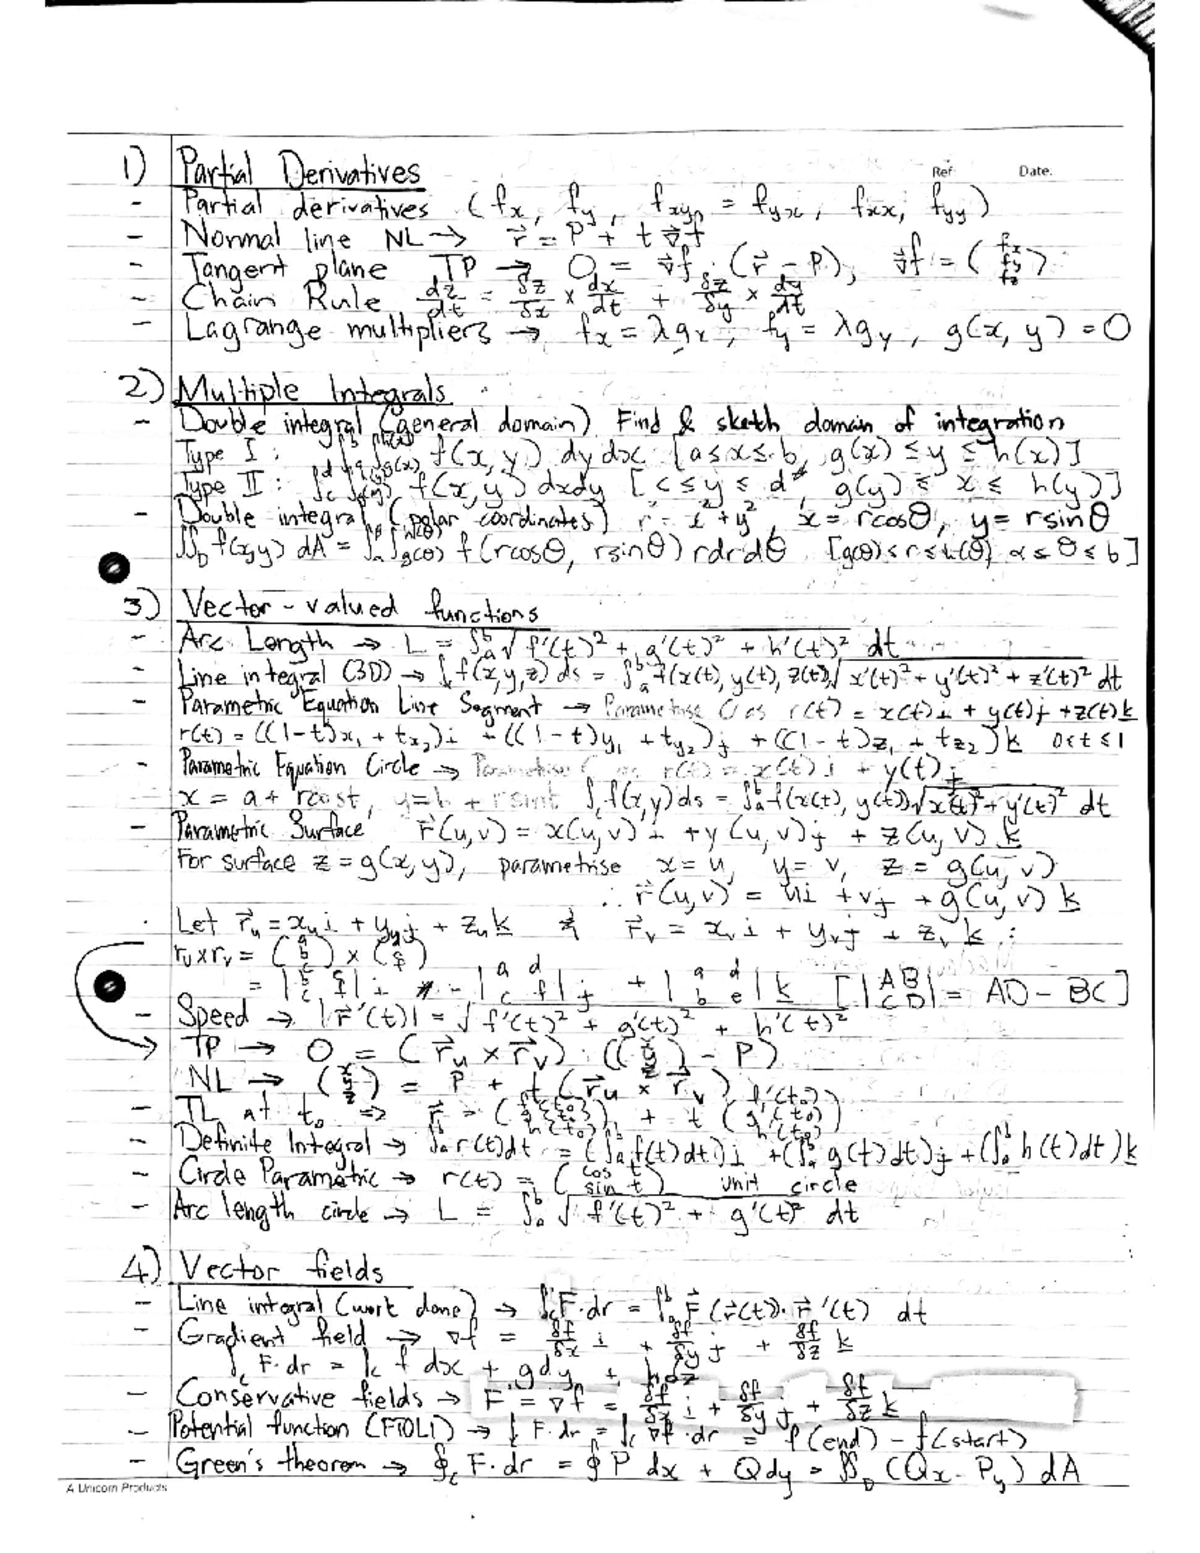 Ref Date.
1) Partial Derivatives
- Partial derivatives (fx, fy, fxy = fyx, fxx, fyy)
- Normal line NL → r⃗ = P + t ∇f
- Tangent plane TP → 0 = ∇f · (r⃗ - P), ∇f = (fx fy fz)
- Chain Rule dz/dt = δz/δx × dx/dt + δz/δy × dy/dt
- Lagrange multipliers → fx = λgx, fy = λgy, g(x, y) = 0
2) Multiple Integrals
- Double integral (general domain) Find & sketch domain of integration
Type I : ∫ᵇₐ ∫ʰ⁽ˣ⁾g(x) f(x, y) dy dx [a ≤ x ≤ b, g(x) ≤ y ≤ h(x)]
Type II : ∫ᵈc ∫ f(x, y) dxdy [c ≤ y ≤ d, g(y) ≤ x ≤ h(y)]
- Double integral (polar coordinates) r = x² + y², x = rcosθ, y = rsinθ
∫∫D f(x,y) dA = ∫ ∫g(θ) f(rcosθ, rsinθ) rdrdθ [g(θ) ≤ r ≤ h(θ), α ≤ θ ≤ b]
3) Vector-valued functions
- Arc Length → L = ∫ᵇₐ √f'(t)² + g'(t)² + h'(t)² dt
- Line integral (3D) → ∫ f(x,y,z) ds = ∫ᵇₐ f(x(t), y(t), z(t))√x'(t)² + y'(t)² + z'(t)² dt
- Parametric Equation Line Segment → Parametrise C as r(t) = x(t)i + y(t)j + z(t)k
r(t) = ((1-t)x₁ + tx₂)i + ((1-t)y₁ + ty₂)j + ((1-t)z₁ + tz₂)k 0 < t ≤ 1
- Parametric Equation Circle → Parametrise C as r(t) = x(t)i + y(t)j
x = a + rcost, y = b + rsint ∫c f(x,y)ds = ∫ᵇₐ f(x(t), y(t))√x'(t)² + y'(t)² dt
- Parametric Surface r⃗(u,v) = x(u,v)i + y(u,v)j + z(u,v)k
For surface z = g(x,y), parametrise x = u, y = v, z = g(u,v)
∴ r⃗(u,v) = ui + vj + g(u,v)k
Let r⃗u = xu i + yu j + zu k & r⃗v = xv i + yv j + zv k :
ru×rv = (a b c) × (d e f)
= |b e c f| i - |a d c f| j + |a d b e| k [|A B C D| = AD - BC]
- Speed → |r⃗'(t)| = √f'(t)² + g'(t)² + h'(t)²
TP → 0 = (r⃗u × r⃗v) · ((x y z) - P)
NL → (x y z) = P + t (r⃗u × r⃗v)
- TL at t₀ => r⃗ = (f(t₀) g(t₀) h(t₀)) + t (f'(t₀) g'(t₀) h'(t₀))
- Definite Integral → ∫ᵇₐ r(t)dt = (∫ᵇₐ f(t)dt)i + (∫ᵇₐ g(t)dt)j + (∫ᵇₐ h(t)dt)k
- Circle Parametric → r(t) = (cos t sin t) unit circle
- Arc length circle → L = ∫ᵇₐ √f'(t)² + g'(t)² dt
4) Vector fields
- Line integral (work done) → ∫c F⃗·dr = ∫ᵇₐ F⃗(r⃗(t))·r⃗'(t) dt
- Gradient field → ∇f = δf/δx i + δf/δy j + δf/δz k
∫c F·dr = ∫c f dx + gdy + hdz
- Conservative fields → F = ∇f = δf/δx i + δf/δy j + δf/δz k
- Potential function (FTOLI) → ∫c F·dr = ∫c ∇f·dr = f(end) - f(start)
- Green's theorem → ∮c F·dr = ∮ P dx + Qdy = ∫∫D (Qx - Py) dA
A Unicorn Products